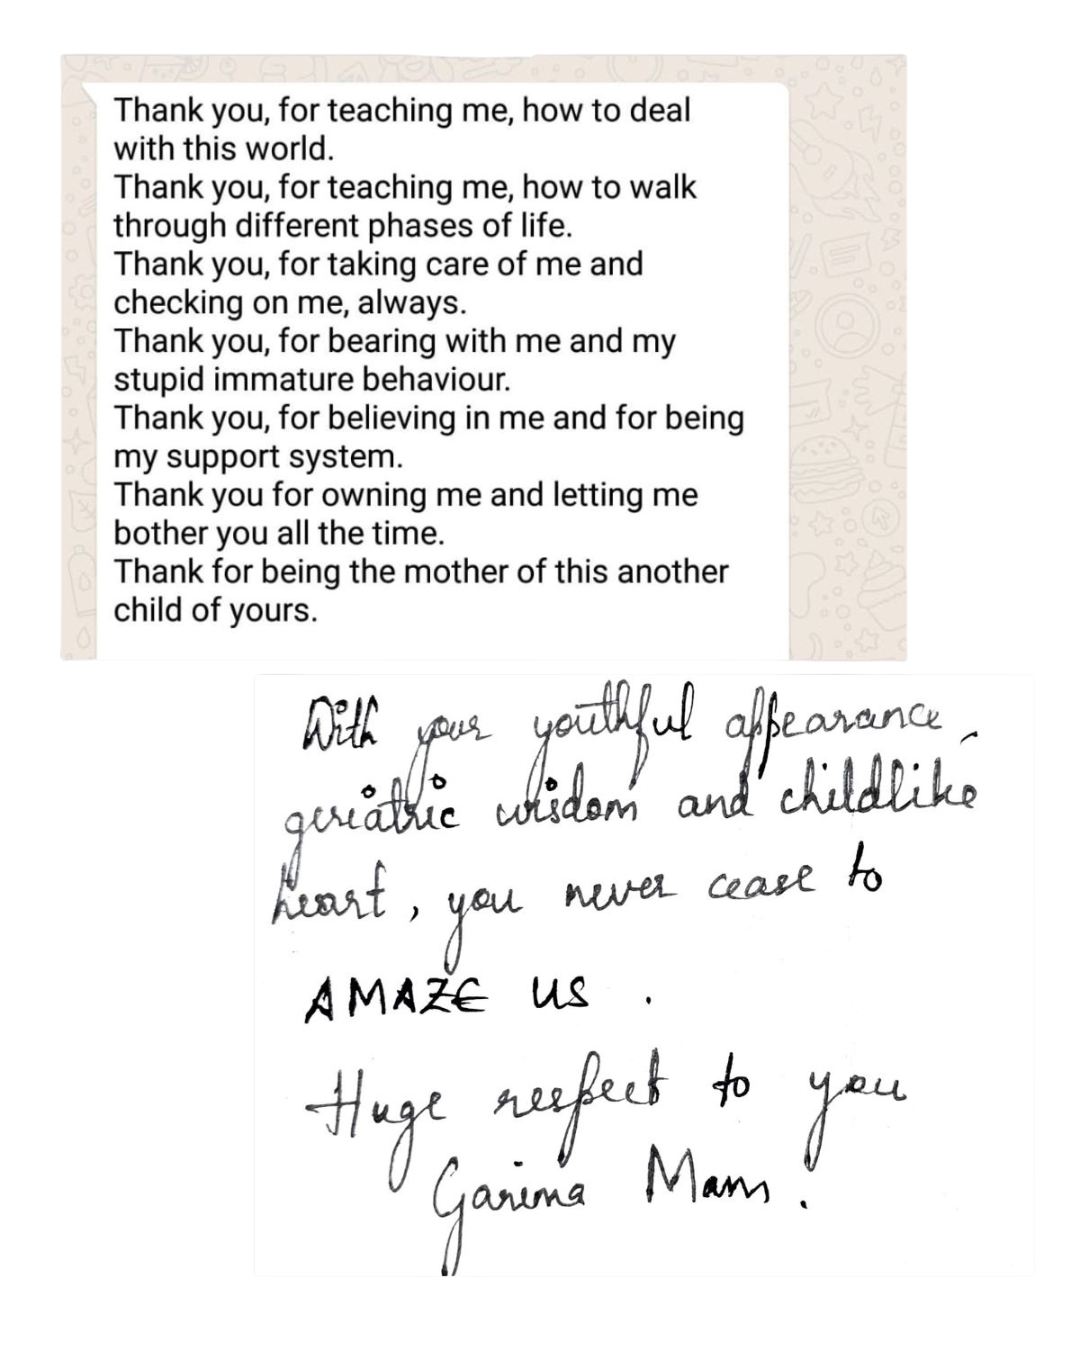 Thank you, for teaching me, how to deal
with this world.
Thank you, for teaching me, how to walk
through different phases of life.
Thank you, for taking care of me and
checking on me, always.
Thank you, for bearing with me and my
stupid immature behaviour.
Thank you, for believing in me and for being
my support system.
Thank you for owning me and letting me
bother you all the time.
Thank for being the mother of this another
child of yours.
With your youthful appearance,
geriatric wisdom and childlike
heart, you never cease to
AMAZE US.
Huge respect to you
Garima Mam.